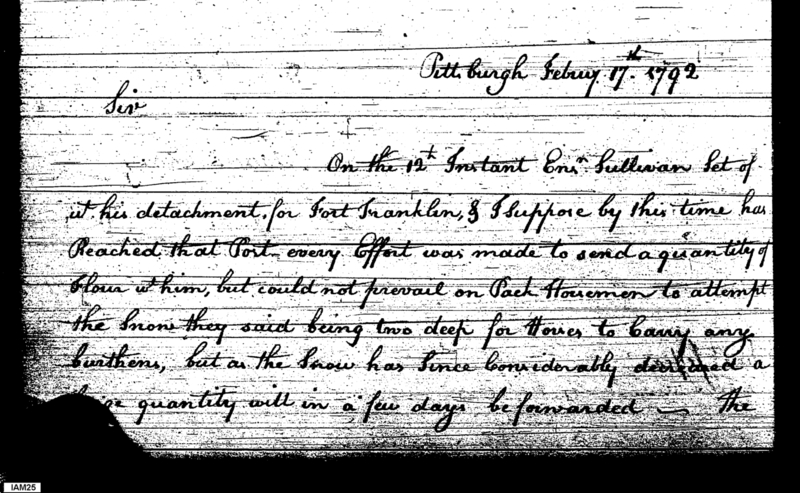 Pittsburgh Februy 17th 1792
Sir
On the 12th Instant Ensn Sullivan Set of
wt his detachment, for Fort Franklin, & I Suppose by this time has
Reached that Post every Effort was made to send a quantity of
Flour wt him, but could not prevail on Pack Horsemen to attempt
the Snow they said being two deep for Horses to Carry any
burthens, but as the Snow has Since Considerably decreased a
quantity will in a few days be forwarded — The
IAM25